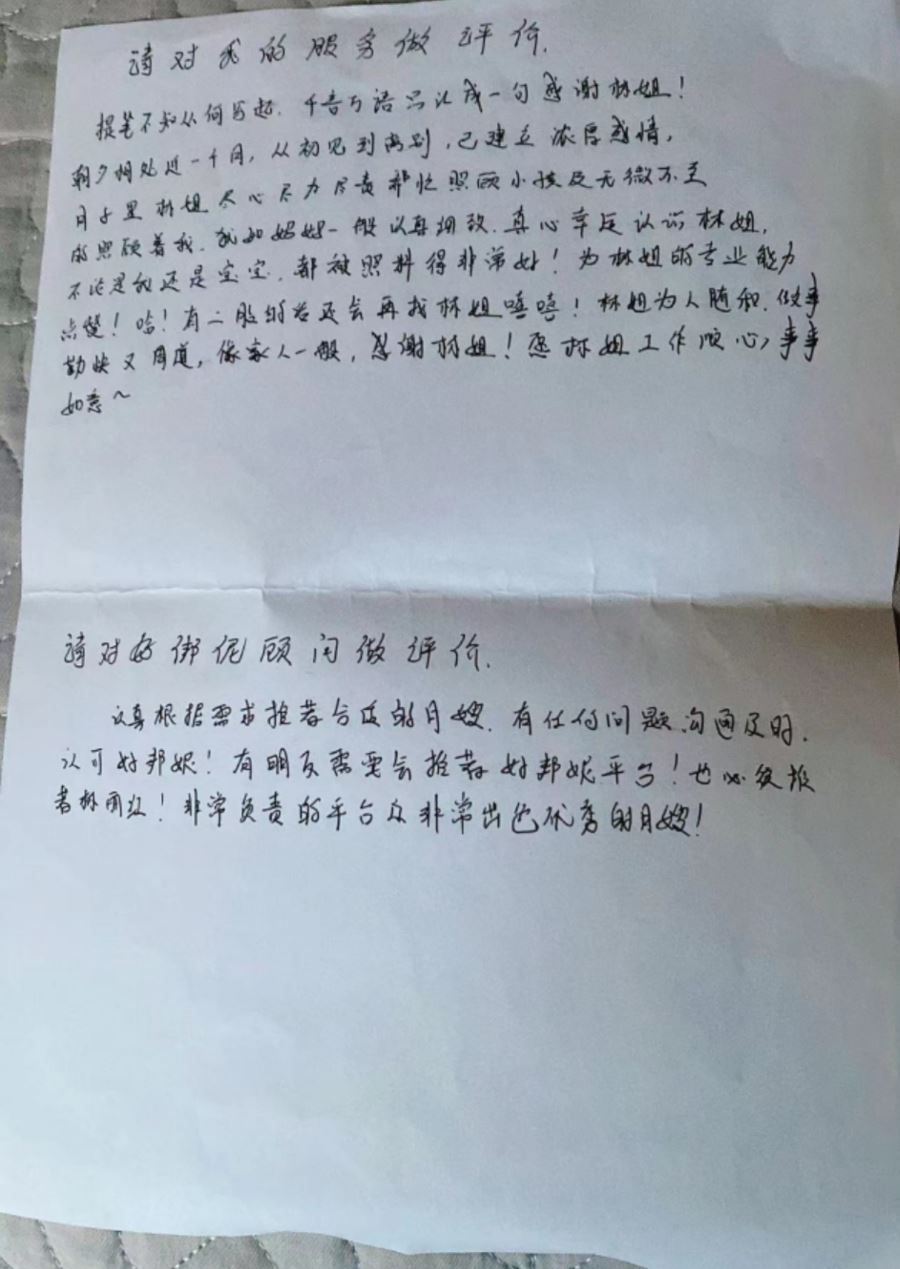 请对我的服务做评价.
提笔不知从何写起. 千言万语只汇成一句感谢林姐!
朝夕相处近一个月, 从初见到离别, 已建立浓厚感情,
月子里林姐尽心尽力尽责 照顾小孩及无微不至
的照顾着我. 我如妈妈一般认真细致. 真心幸运认识林姐,
不论是我还是宝宝, 都被照料得非常好! 为林姐的专业能力
点赞! 哈! 有二胎的话还会再找林姐嘻嘻! 林姐为人随和. 做事
勤快又周道, 像家人一般, 感谢林姐! 愿林姐工作顺心, 事事
如意~
请对好绑伲顾问做评价.
认真根据需求推荐合适的月嫂. 有任何问题沟通及时.
认可好邦妮! 有朋友需要会推荐好邦妮平台! 也必须推
荐林 红! 非常负责的平台及非常出色优秀的月嫂!